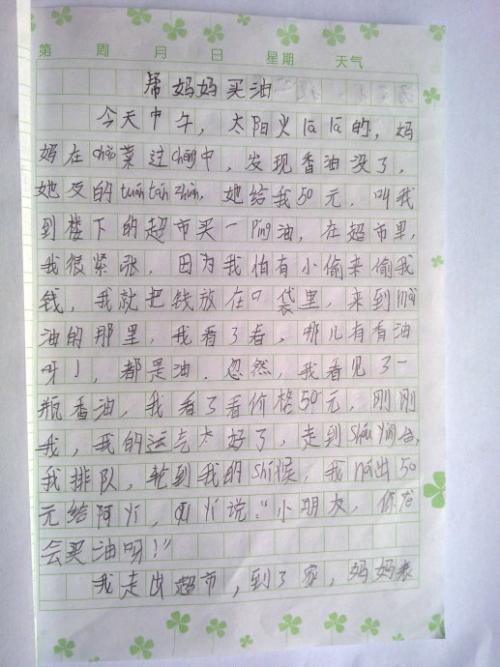 第 周 月 日 星期 天气
帮妈妈买油
今天中午，太阳火là là的，妈
妈在chǎo菜过chéng中，发现香油没了，
她急的tuán tuán zhuàn，她给我50元，叫我
到楼下的超市买一Píng油，在超市里，
我很紧张，因为我怕有小偷来偷我
钱，我就把钱放在口袋里，来到mài
油的那里，我看了看，哪儿有香油
呀！，都是油．忽然，我看见了一
瓶香油，我看了看价格50元，刚刚
我，我的运气太好了，走到Shōu yín台，
我排队，轮到我的Shí候，我ná出50
元给阿yí，阿yí说："小朋友，你
会买油呀！"
我走出超市，到了家，妈妈表